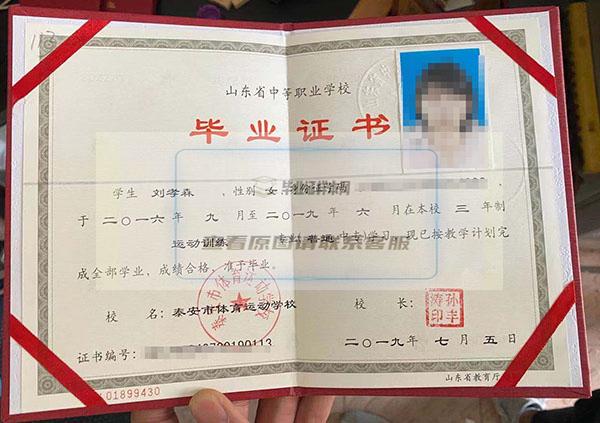 山东省中等职业学校
毕业证书
学生 刘孝森 ，性别 女
于 二〇一六 年 九 月至 二〇一九 年 六 月在本校 三 年制
运动训练 专业(普通中专)学习，现已按教学计划完
成全部学业，成绩合格，准予毕业。
查看原图请联系客服
校 名：泰安市体育运动学校
校 长：
证书编号：
二〇一九年 七 月 五 日
01899430
山东省教育厅